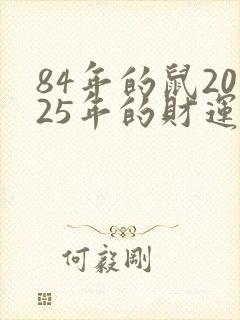 84年的鼠20
25年的財運
何毅剛